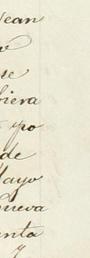 Jean
se
biera
ypo
de
Mayo
nueva
enta
y